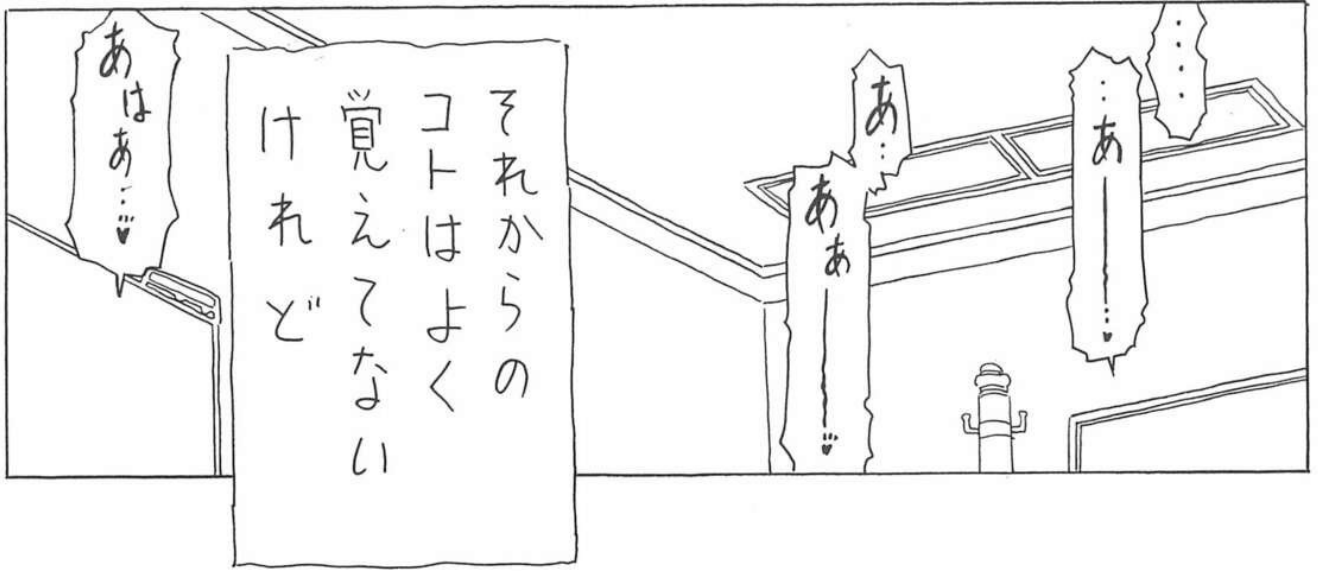 ‥‥
‥あ――‥♥
あ‥
ああ――‥゛♥
それからの
コトはよく
覚えてない
けれど
あはぁ‥゛♥